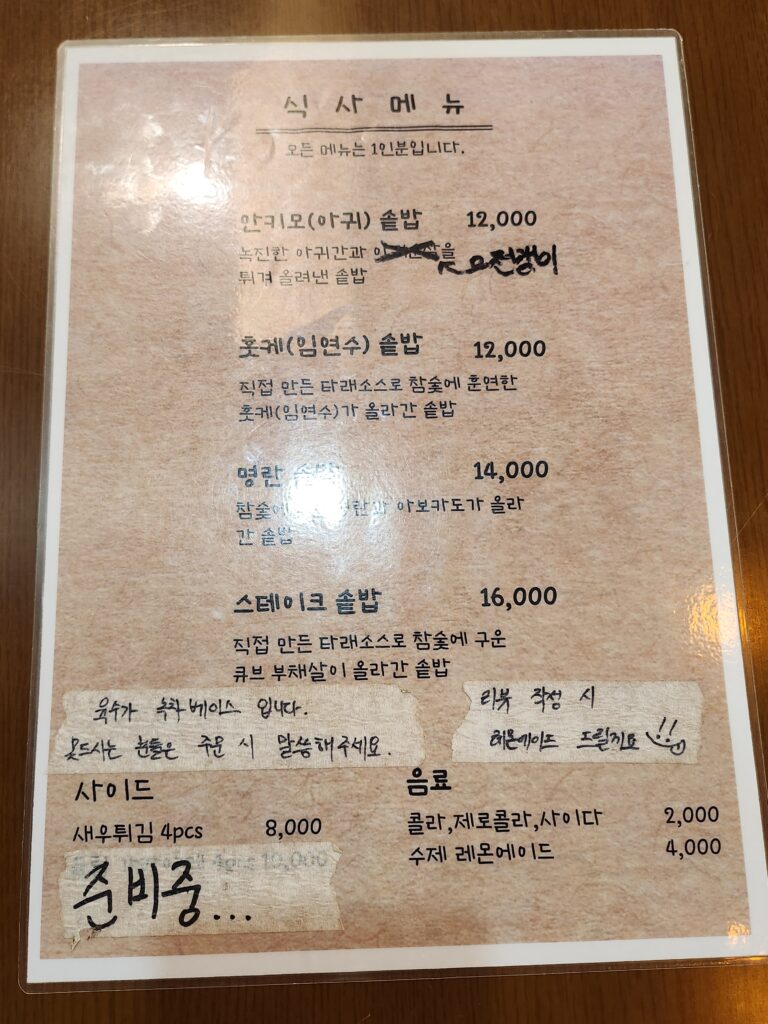 식사메뉴
모든 메뉴는 1인분입니다.
안키모(아귀) 솥밥 12,000
녹진한 아귀간과 을
튀겨 올려낸 솥밥
홋케(임연수) 솥밥 12,000
직접 만든 타래소스로 참숯에 훈연한
홋케(임연수)가 올라간 솥밥
명란 14,000
참숯에 아보카도가 올라
간 솥밥
스테이크 솥밥 16,000
직접 만든 타래소스로 참숯에 구운
큐브 부채살이 올라간 솥밥
육수가 녹차 베이스 입니다.
못드시는 분들은 주문 시 말씀해주세요.
리뷰 작성 시
레몬에이드 드릴게요
사이드
새우튀김 4pcs 8,000
준비중...
음료
콜라,제로콜라,사이다 2,000
수제 레몬에이드 4,000